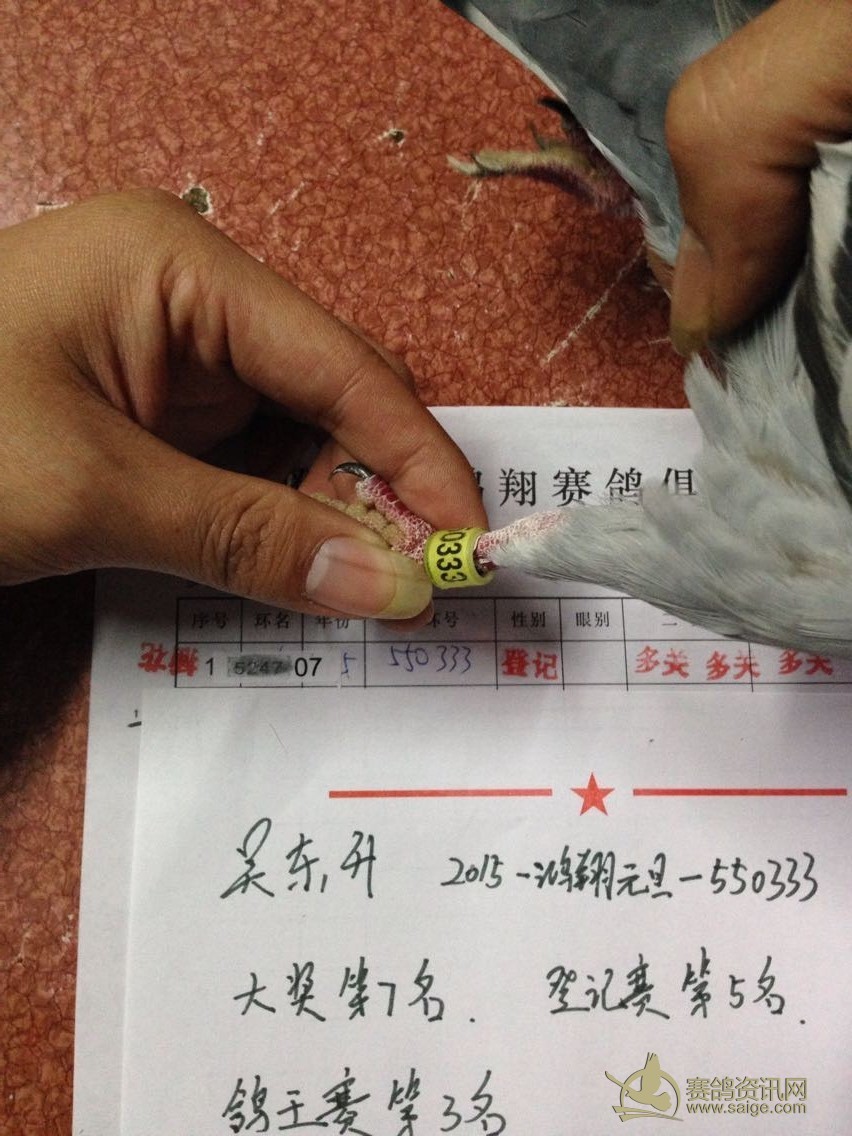 翔赛鸽俱
0333
序号 环名 年份 环号 性别 眼别 二
1 5247 07 5 550333 登记 多关 多关 多关
吴东升 2015-鸿翔元旦-550333
大奖第7名. 登记赛第5名.
鸽王赛第3名
赛鸽资讯网
www.saige.com